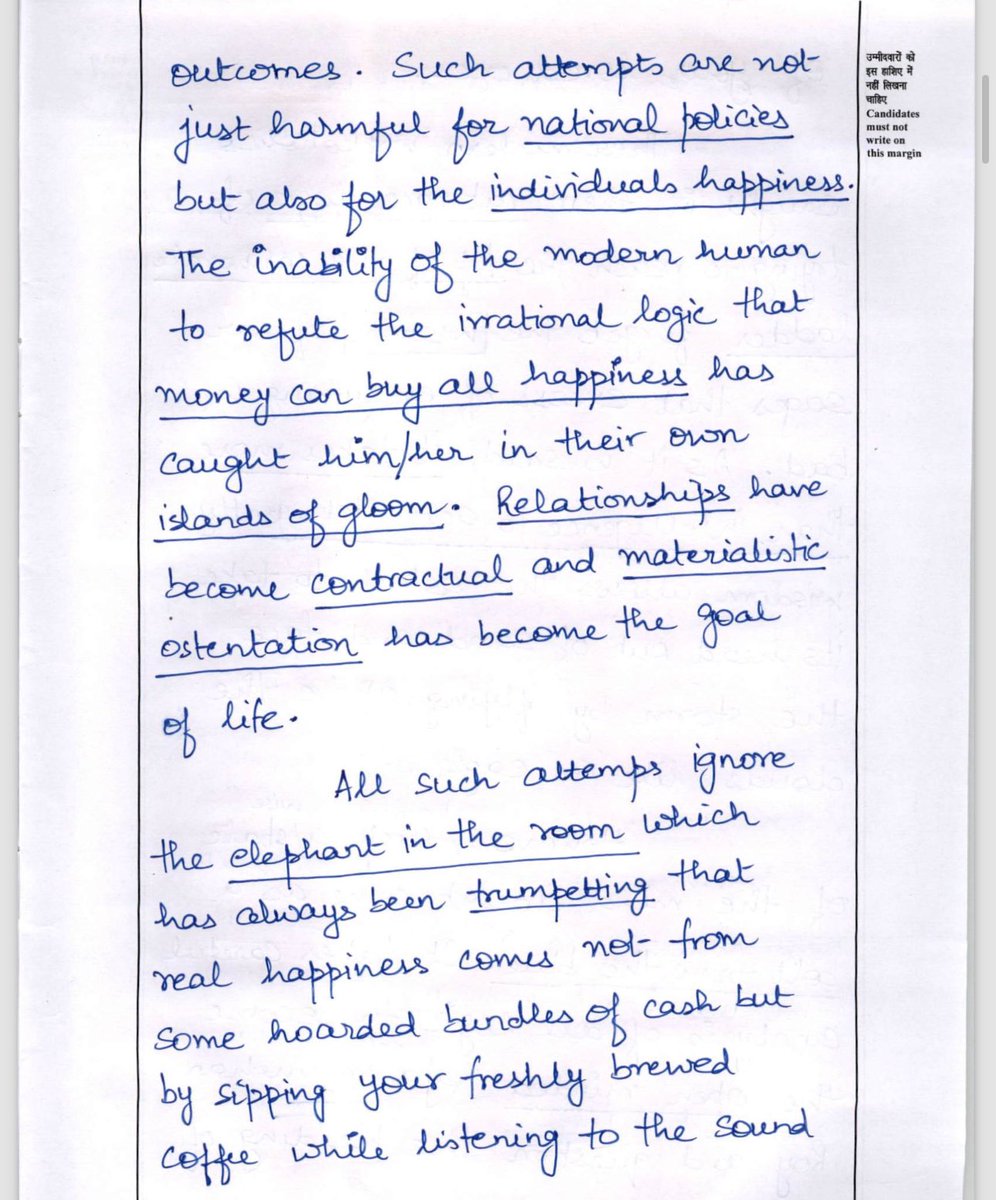 outcomes. Such attempts are not
just harmful for national policies
but also for the individuals happiness.
The inability of the modern human
to refute the irrational logic that
money can buy all happiness has
caught him/her in their own
islands of gloom. Relationships have
become contractual and materialistic
ostentation has become the goal
of life.
All such attemps ignore
the elephant in the room which
has always been trumpetting that
real happiness comes not from
some hoarded bundles of cash but
by sipping your freshly brewed
coffee while listening to the sound
उम्मीदवारों को
इस हाशिए में
नहीं लिखना
चाहिए
Candidates
must not
write on
this margin